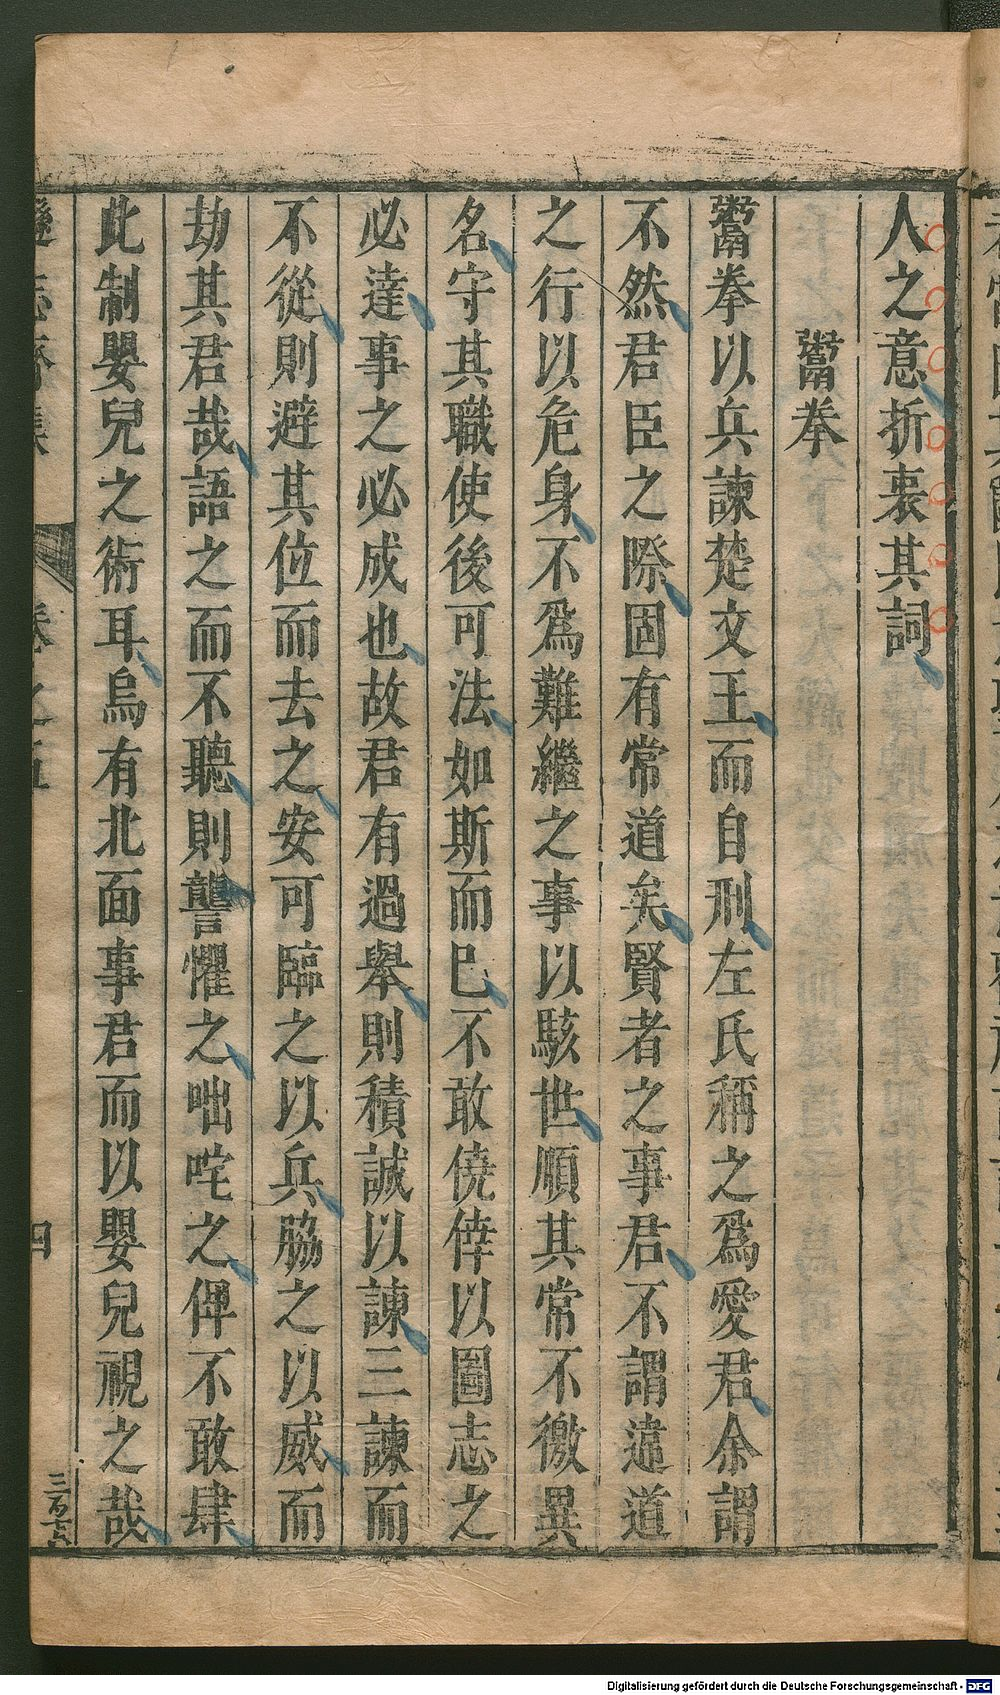 人之意折衷其詞
鬻拳
鬻拳以兵諫楚文王而自刑左氏稱之爲愛君余謂
不然君臣之際固有常道矣賢者之事君不謂違道
之行以危身不爲難繼之事以駭世順其常不徼異
名守其職使後可法如斯而已不敢僥倖以圖志之
必達事之必成也故君有過舉則積誠以諫三諫而
不從則避其位而去之安可臨之以兵脇之以威而
劫其君哉語之而不聽則讋懼之咄咤之俾不敢肆
此制嬰兒之術耳烏有北面事君而以嬰兒視之哉
遜志齋集
卷之五
四
三百七六
Digitalisierung gefördert durch die Deutsche Forschungsgemeinschaft - DFG